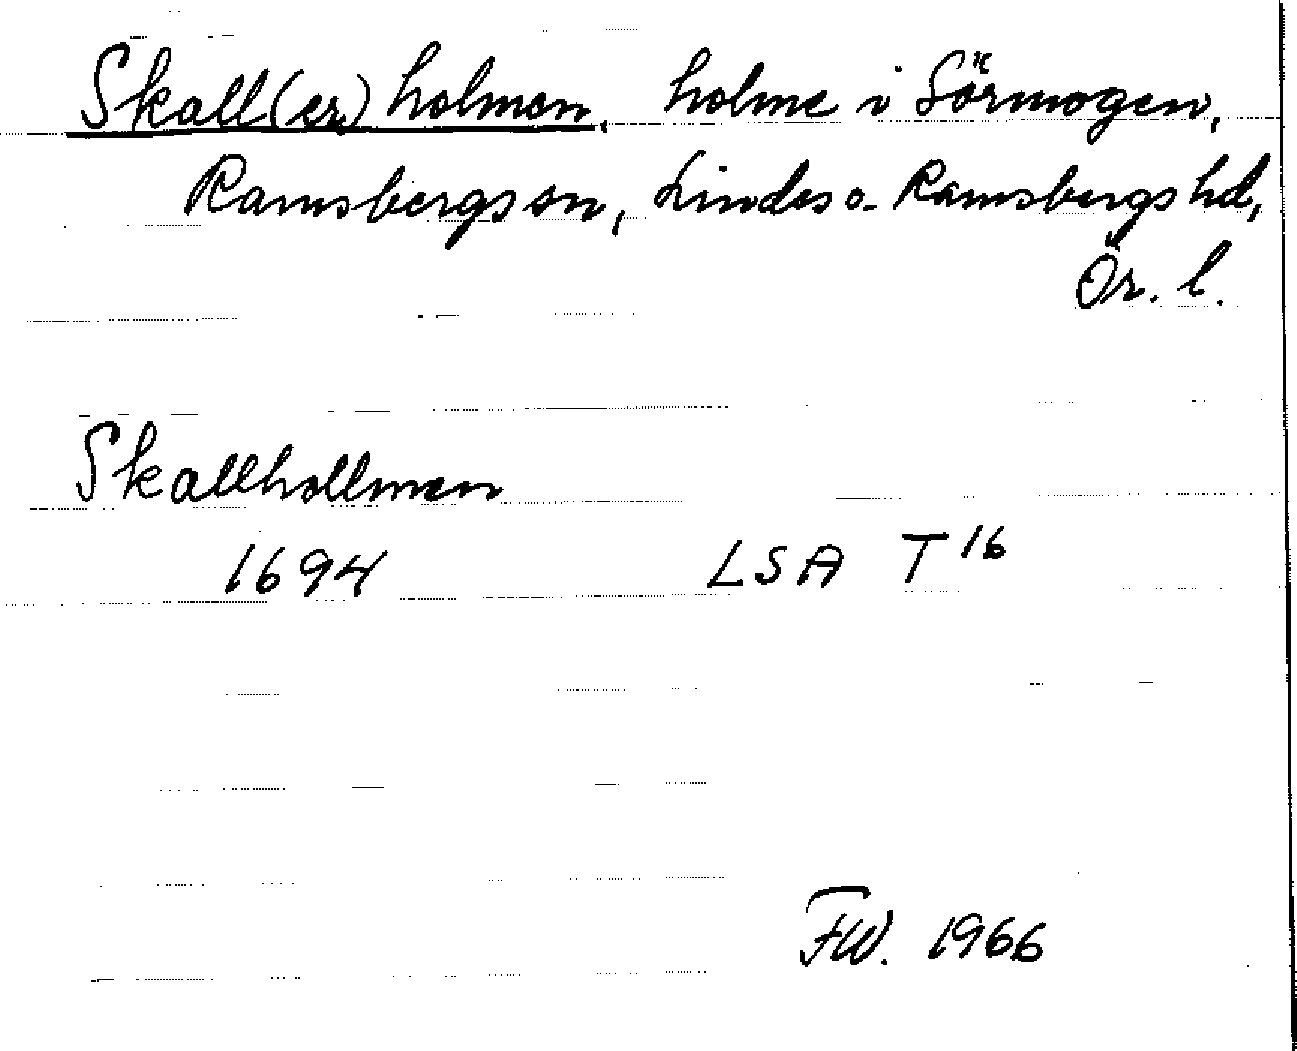 Skall(er)holmen, holme i Sörmogen,
Ramsbergs sn, Lindes o. Ramsbergs hd,
Ör. l.
Skallhollmen
1694 LSA T 16
FW. 1966